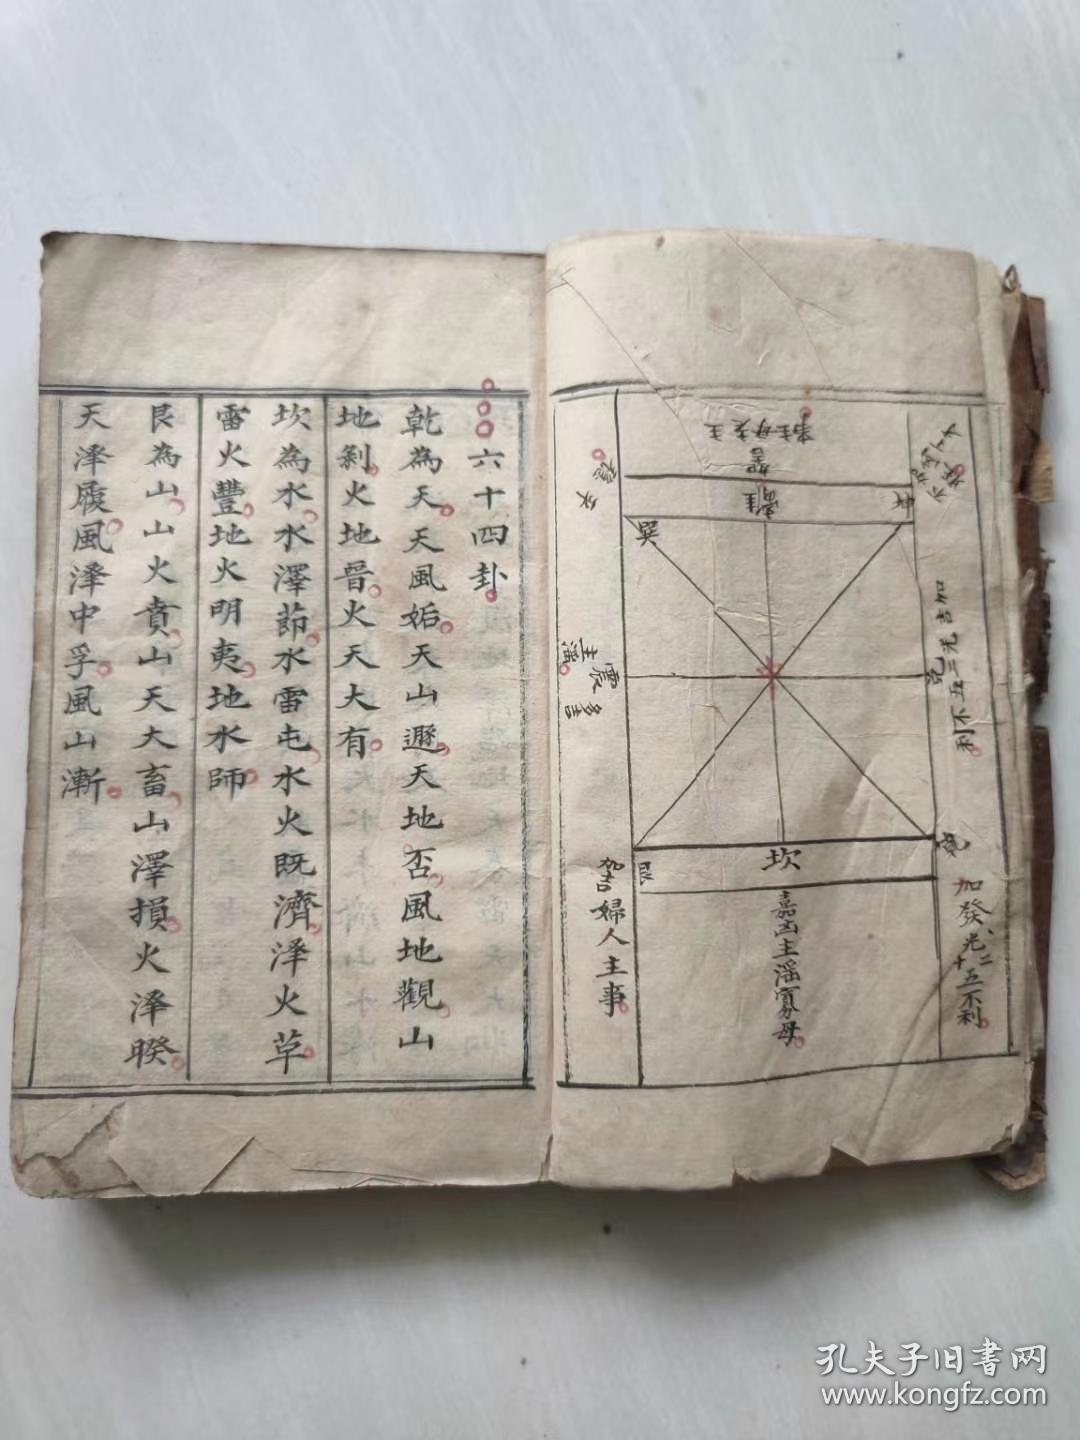 加發光二十五不利
利不五二光吉加
兌
乾
坤
離
巽
坎
嘉凶主淫寡母
震
艮
加吉婦人主事
六十四卦
乾為天天風姤天山遯天地否風地觀山
地剝火地晉火天大有
坎為水水澤節水雷屯水火既濟泽火革
雷火豐地火明夷地水師
艮為山山火賁山天大畜山澤損火泽睽
天泽履風泽中孚風山漸
孔夫子旧書网
www.kongfz.com